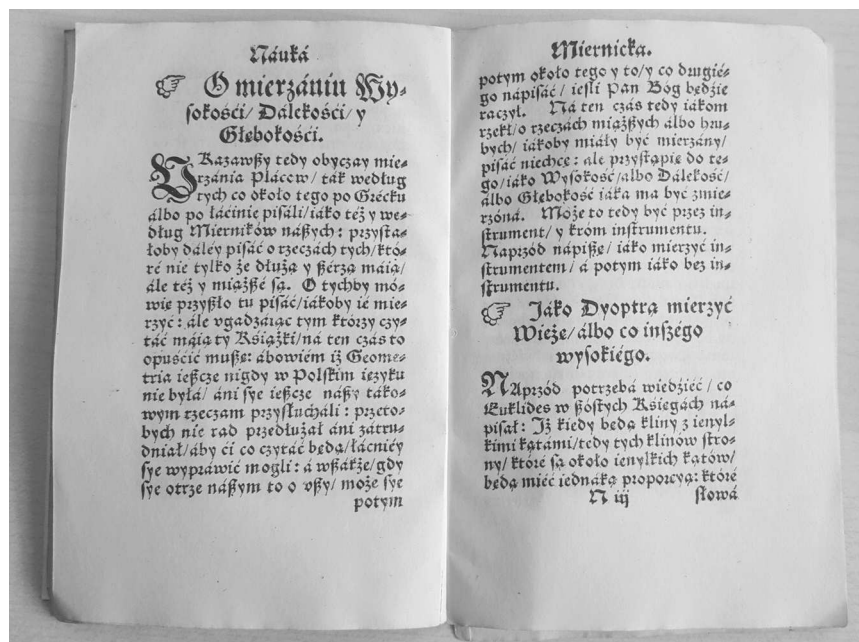 Náuká
☞ O mierzániu Wy-
sokośći/ Dálekośći/ y
Głębokośći.
VKazawßy tedy obyczay mie-
rzánia Plácow/ ták według
tych co około tego po Grécku
álbo po łácinie pisáli/iáko téż y we-
dług Mierników náßych: przystá-
łoby dáléy pisáć o rzeczách tych/któ-
ré nie tylko że dłużą y ßérzą máią/
ále téż y miążßé są. O tychby mó-
wię przyßło tu pisáć/iákoby ié mie-
rzyć: ále vgadzáiąc tym którzy czy-
táć máią ty Książki/ná ten czás to
opuśćić mußę: ábowiém iż Geome-
tria ießcze nigdy w Polskim ięzyku
nie byłá/ áni sye ießcze náßy táko-
wym rzeczam przysłucháli: przeto-
bych nie rad przedłużał áni zátru-
dniał/áby ći co czytáć będą/łácniéy
sye wypráwić mogli: á wßákże/gdy
sye otrze náßym to o vßy/ może sye
potym
Miernicka.
potym około tego y to/y co drugié-
go nápisáć/ iesli Pan Bóg będzie
raczył. Ná ten czás tedy iákom
rzekł/o rzeczách miążßych álbo hru-
bych/ iákoby miáły być mierzány/
pisáć niechcę: ále przystąpię do te-
go/iáko Wysokość/álbo Dálekość/
álbo Głębokość iáka ma być zmie-
rzóná. Może to tedy być przez in-
strument/ y króm instrumentu.
Naprzód nápißę/ iáko mierzyć in-
strumentem/ á potym iáko bez in-
strumentu.
☞ Jáko Dyoptrą mierzyć
Wieże/ álbo co inszégo
wysokiégo.
NAprzód potrzebá wiedźieć/ co
Euklides w ßóstych Księgách ná-
pisał: Iż kiedy będą kliny z ienyl-
kimi kątámi/tedy tych klinów stro-
ny/ któré są około ienylkich kątów/
będą miéć iednáką proporcyą: któré
N iij słowá